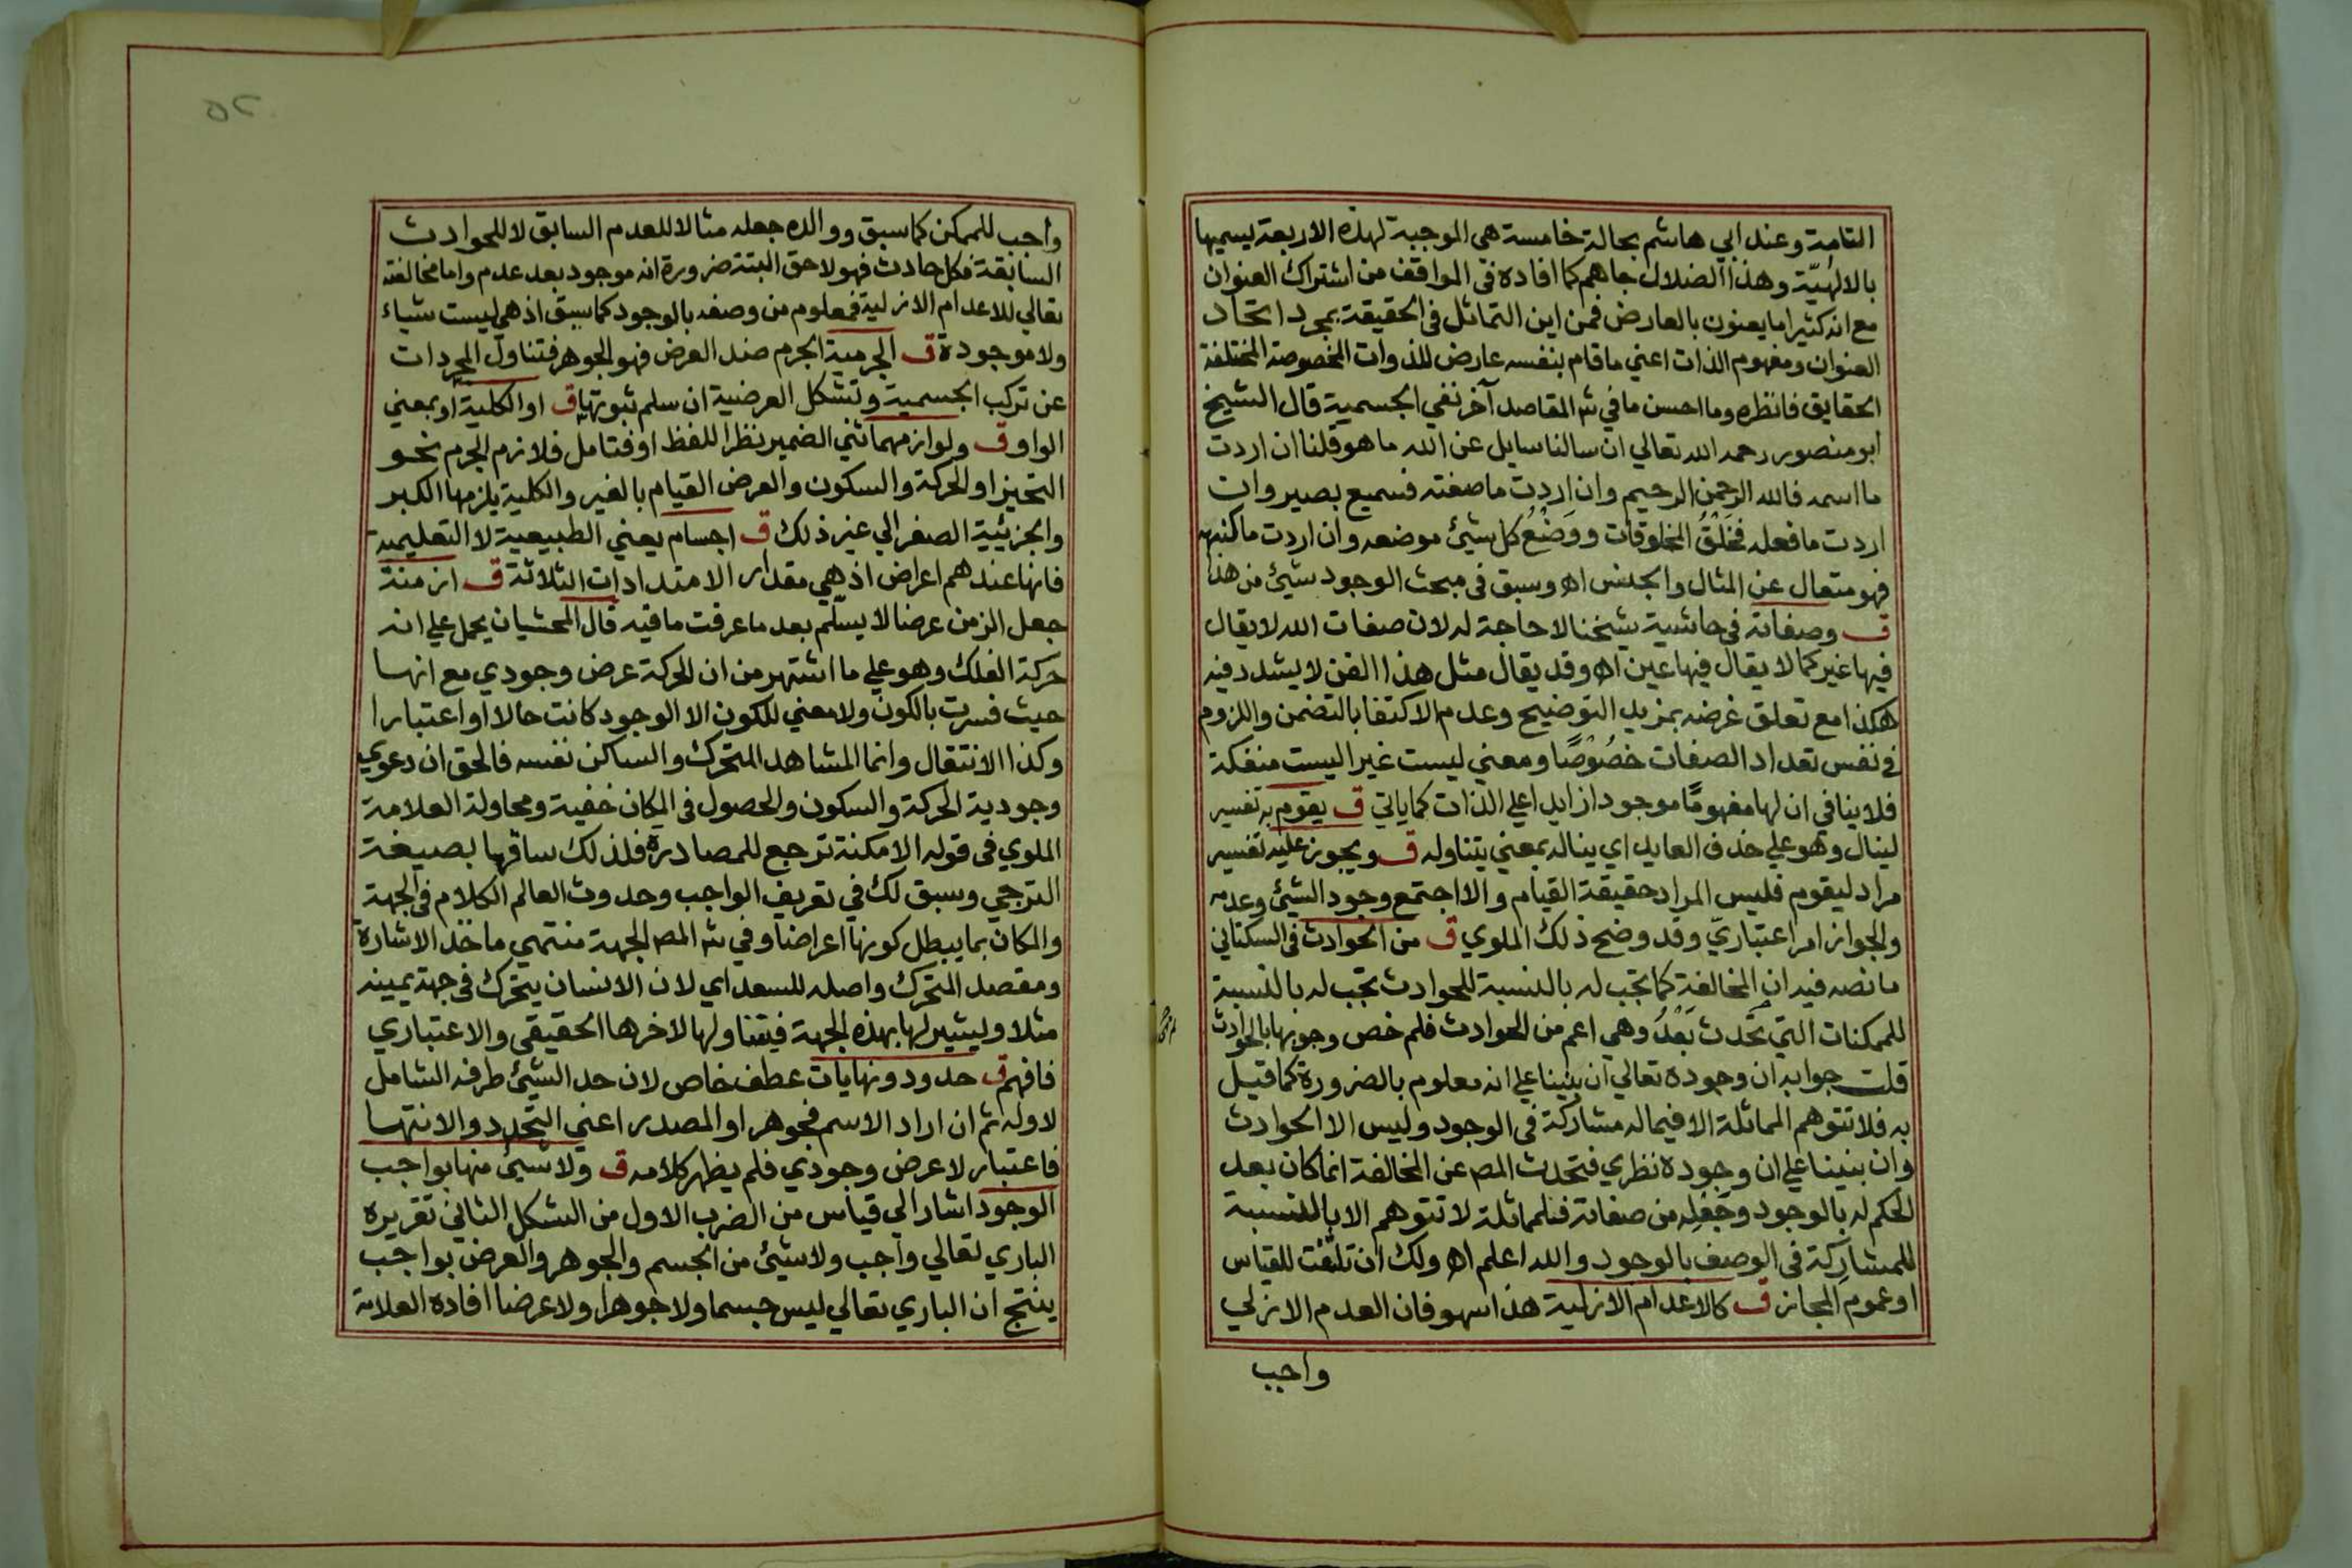 التامة وعند ابي هاشم بحالة خامسة هي الموجبة لهذه الاربعة يسميها
بالالهيّة وهذا الضلال جاهم كما افاده في المواقف من اشتراك العنوان
مع انه كثيرا ما يعنون بالعارض فمن اين التماثل في الحقيقة بمجرد اتحاد
العنوان ومفهوم الذات اعني ما قام بنفسه عارض للذوات المخصوصة المختلفة
الحقايق فانظره وما احسن ما في شه المقاصد آخر نفي الجسمية قال الشيخ
ابو منصور رحمه الله تعالي ان سالنا سايل عن الله ما هو قلنا ان اردت
ما اسمه فالله الرحمن الرحيم وان اردت ما صفته فسميع بصير وان
اردت ما فعله فخَلْقُ المخلوقات ووَضْعُ كل شيئ موضعه وان اردت ما كنهه
فهو متعال عن المثال والجنس اه وسبق في مبحث الوجود شيئ من هذا
ق وصفاته في حاشية شيخنا لا حاجة له لان صفات الله لا يقال
فيها غير كما لا يقال فيها عين اه وقد يقال مثل هذا الفن لا يشدد فيه
هكذا مع تعلق غرضه بمزيد التوضيح وعدم الاكتفا بالتضمن واللزوم
في نفس تعداد الصفات خصُوصًا ومعني ليست غيرا ليست منفكة
فلا ينافي ان لها مفهومًا موجودا زايدا علي الذات كما ياتي ق يقوم به تفسير
لينال وهو علي حذف العايد اي يناله بمعني يتناوله ق ويجوز عليه تفسير
مراد ليقوم فليس المراد حقيقة القيام والا اجتمع وجود الشيئ وعدمه
والجواز امر اعتباريّ وقد وضح ذلك الملوي ق من الحوادث في السكتاني
ما نصه فيه ان المخالفة كما تجب له بالنسبة للحوادث تجب له بالنسبة
للممكنات التي تحدث بَعْدُ وهي اعم من الحوادث فلم خص وجوبها بالحوادث
قلت جوابه ان وجوده تعالي ان بنينا علي انه معلوم بالضرورة كما قيل
به فلا تتوهم المماثلة الا فيما له مشاركة في الوجود وليس الا الحوادث
وان بنينا علي ان وجوده نظري فتحدث المص عن المخالفة انما كان بعد
الحكم له بالوجود وجَعْلِه من صفاته فالمماثلة لا تتوهم الا بالنسبة
للمشاركة في الوصف بالوجود والله اعلم اه ولك ان تلتفت للقياس
او عموم المجاز ق كالاعدام الازلية هذا سهو فان العدم الازلي
واجب
واجب للممكن كما سبق ووالده جعله مثالا للعدم السابق لا للحوادث
السابقة فكل حادث فهو لاحق البتة ضرورة انه موجود بعد عدم واما مخالفته
تعالي للاعدام الازلية فمعلوم من وصفه بالوجود كما سبق اذ هي ليست شياء
ولا موجودة ق الجرمية الجرم ضد العرض فهو الجوهر فتناول المجردات
عن تركب الجسمية وتشكل العرضية ان سلم ثبوتها ق او الكلية او بمعني
الواو ق ولوازمهما ثني الضمير نظرا للفظ او فتامل فلازم الجرم نحو
التحيز او الحركة والسكون والعرض القيام بالغير والكلية يلزمها الكبر
والجزئيية الصغر الي غير ذلك ق اجسام يعني الطبيعية لا التعليميه
فانها عندهم اعراض اذ هي مقدار الامتدادات الثلاثة ق ازمنة
جعل الزمن عرضا لا يسلّم بعد ما عرفت ما فيه قال المحشيان يحمل علي انه
حركة الفلك وهو علي ما اشتهر من ان الحركة عرض وجودي مع انها
حيث فسرت بالكون ولا معني للكون الا الوجود كانت حالا او اعتبارا
وكذا الانتقال وانما المشاهد المتحرك والساكن نفسه فالحق ان دعوي
وجودية الحركة والسكون والحصول في المكان خفية ومحاولة العلامة
الملوي في قوله الامكنة ترجع للمصادرة فلذلك ساقها بصيغة
الترجي وسبق لك في تعريف الواجب وحدوث العالم الكلام في الجهة
والمكان بما يبطل كونها اعراضا وفي شه المص الجهة منتهي ماخذ الاشارة
ومقصد المتحرك واصله للسعد اي لان الانسان يتحرك في جهة يمينه
مثلا ويشير لها بهذه الجهة فيتناولها لاخرها الحقيقي والاعتباري
فافهم ق حدود ونهايات عطف خاص لان حد الشيئ طرفه الشامل
لاوله ثم ان اراد الاسم فجوهر او المصدر اعني التحدد والانتها
فاعتبار لا عرض وجودي فلم يظهر كلامه ق ولا شيئ منها بواجب
الوجود اشار الي قياس من الضرب الاول من الشكل الثاني تقريره
الباري تعالي واجب ولا شيئ من الجسم والجوهر والعرض بواجب
ينتج ان الباري تعالي ليس جسما ولا جوهرا ولا عرضا افاده العلامة